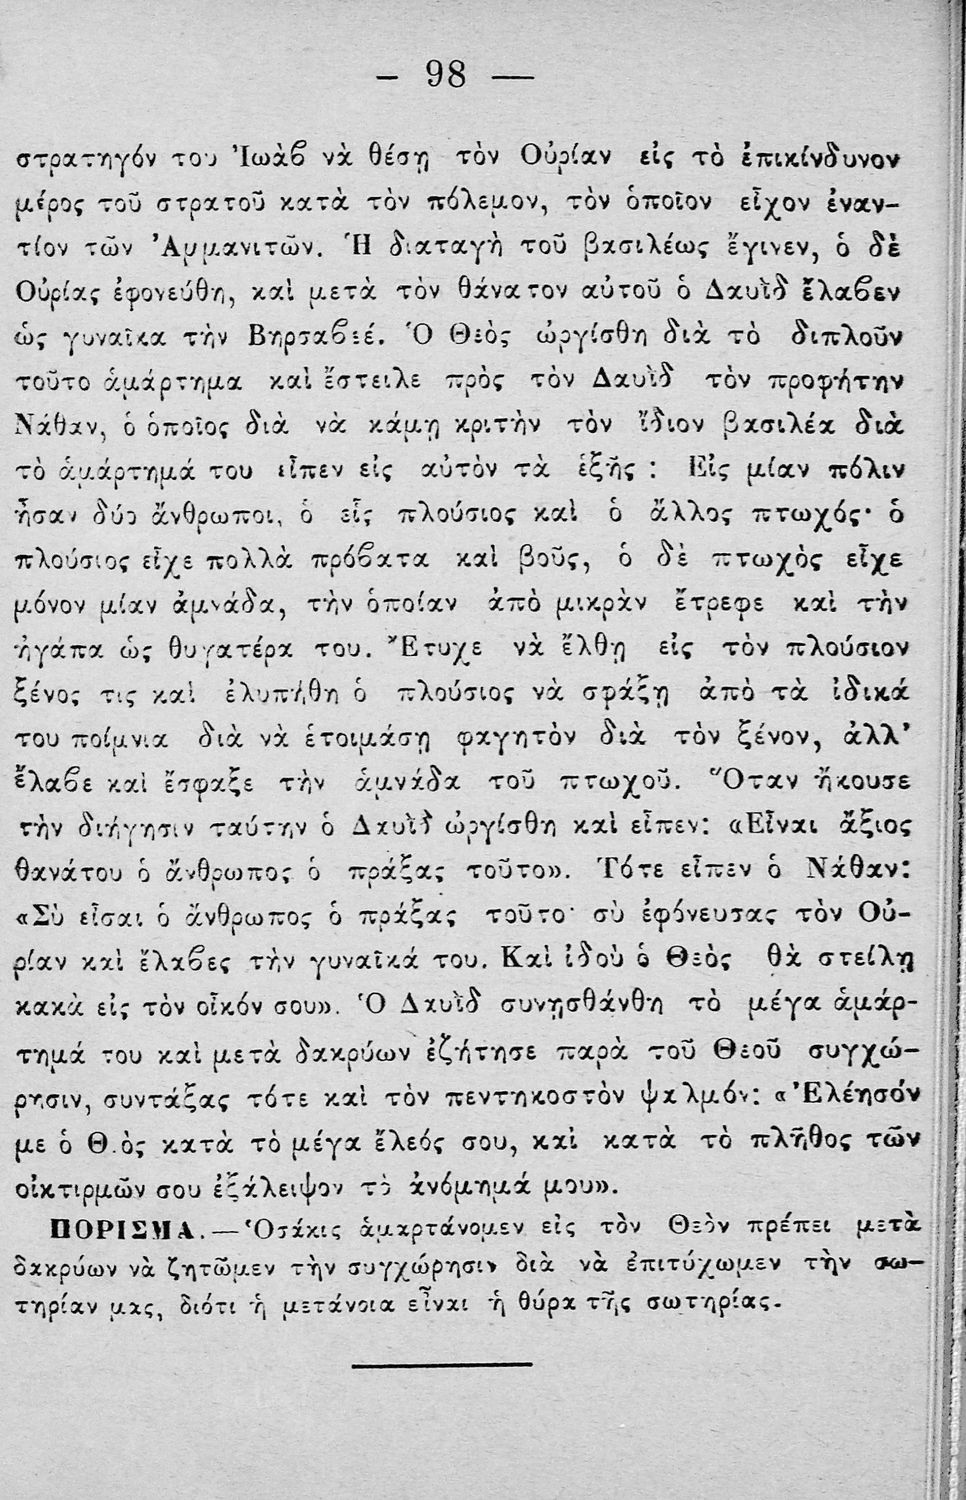 – 98 —
στρατηγόν του Ἰωὰβ νὰ θέσῃ τὸν Οὐρίαν εἰς τὸ ἐπικίνδυνον
μέρος τοῦ στρατοῦ κατὰ τὸν πόλεμον, τὸν ὁποῖον εἶχον ἐναν-
τίον τῶν Ἀμμανιτῶν. Ἡ διαταγὴ τοῦ βασιλέως ἔγινεν, ὁ δὲ
Οὐρίας ἐφονεύθη, καὶ μετὰ τὸν θάνατον αὐτοῦ ὁ Δαυῒδ ἔλαβεν
ὡς γυναῖκα τὴν Βηρσαβεέ. Ὁ Θεὸς ὠργίσθη διὰ τὸ διπλοῦν
τοῦτο ἁμάρτημα καὶ ἔστειλε πρὸς τὸν Δαυῒδ τὸν προφήτην
Νάθαν, ὁ ὁποῖος διὰ νὰ κάμῃ κριτὴν τὸν ἴδιον βασιλέα διὰ
τὸ ἁμάρτημά του εἶπεν εἰς αὐτὸν τὰ ἑξῆς : Εἰς μίαν πόλιν
ἦσαν δύο ἄνθρωποι, ὁ εἷς πλούσιος καὶ ὁ ἄλλος πτωχός· ὁ
πλούσιος εἶχε πολλὰ πρόβατα καὶ βοῦς, ὁ δὲ πτωχὸς εἶχε
μόνον μίαν ἀμνάδα, τὴν ὁποίαν ἀπὸ μικρὰν ἔτρεφε καὶ τὴν
ἠγάπα ὡς θυγατέρα του. Ἔτυχε νὰ ἔλθῃ εἰς τὸν πλούσιον
ξένος τις καὶ ἐλυπήθη ὁ πλούσιος νὰ σφάξῃ ἀπὸ τὰ ἰδικά
του ποίμνια διὰ νὰ ἑτοιμάσῃ φαγητὸν διὰ τὸν ξένον, ἀλλ’
ἔλαβε καὶ ἔσφαξε τὴν ἀμνάδα τοῦ πτωχοῦ. Ὅταν ἤκουσε
τὴν διήγησιν ταύτην ὁ Δαυῒδ ὠργίσθη καὶ εἶπεν: «Εἶναι ἄξιος
θανάτου ὁ ἄνθρωπος ὁ πράξας τοῦτο». Τότε εἶπεν ὁ Νάθαν:
«Σὺ εἶσαι ὁ ἄνθρωπος ὁ πράξας τοῦτο· σὺ ἐφόνευσας τὸν Οὐ-
ρίαν καὶ ἔλαβες τὴν γυναῖκά του. Καὶ ἰδοὺ ὁ Θεὸς θὰ στείλῃ
κακὰ εἰς τὸν οἶκόν σου». Ὁ Δαυῒδ συνῃσθάνθη τὸ μέγα ἁμάρ-
τημά του καὶ μετὰ δακρύων ἐζήτησε παρὰ τοῦ Θεοῦ συγχώ-
ρησιν, συντάξας τότε καὶ τὸν πεντηκοστὸν ψαλμόν: «Ἐλέησόν
με ὁ Θ.ὸς κατὰ τὸ μέγα ἔλεός σου, καὶ κατὰ τὸ πλῆθος τῶν
οἰκτιρμῶν σου ἐξάλειψον τὸ ἀνόμημά μου».
ΠΟΡΙΣΜΑ.— Ὁσάκις ἁμαρτάνομεν εἰς τὸν Θεὸν πρέπει μετὰ
δακρύων νὰ ζητῶμεν τὴν συγχώρησιν διὰ νὰ ἐπιτύχωμεν τὴν σω-
τηρίαν μας, διότι ἡ μετάνοια εἶναι ἡ θύρα τῆς σωτηρίας.